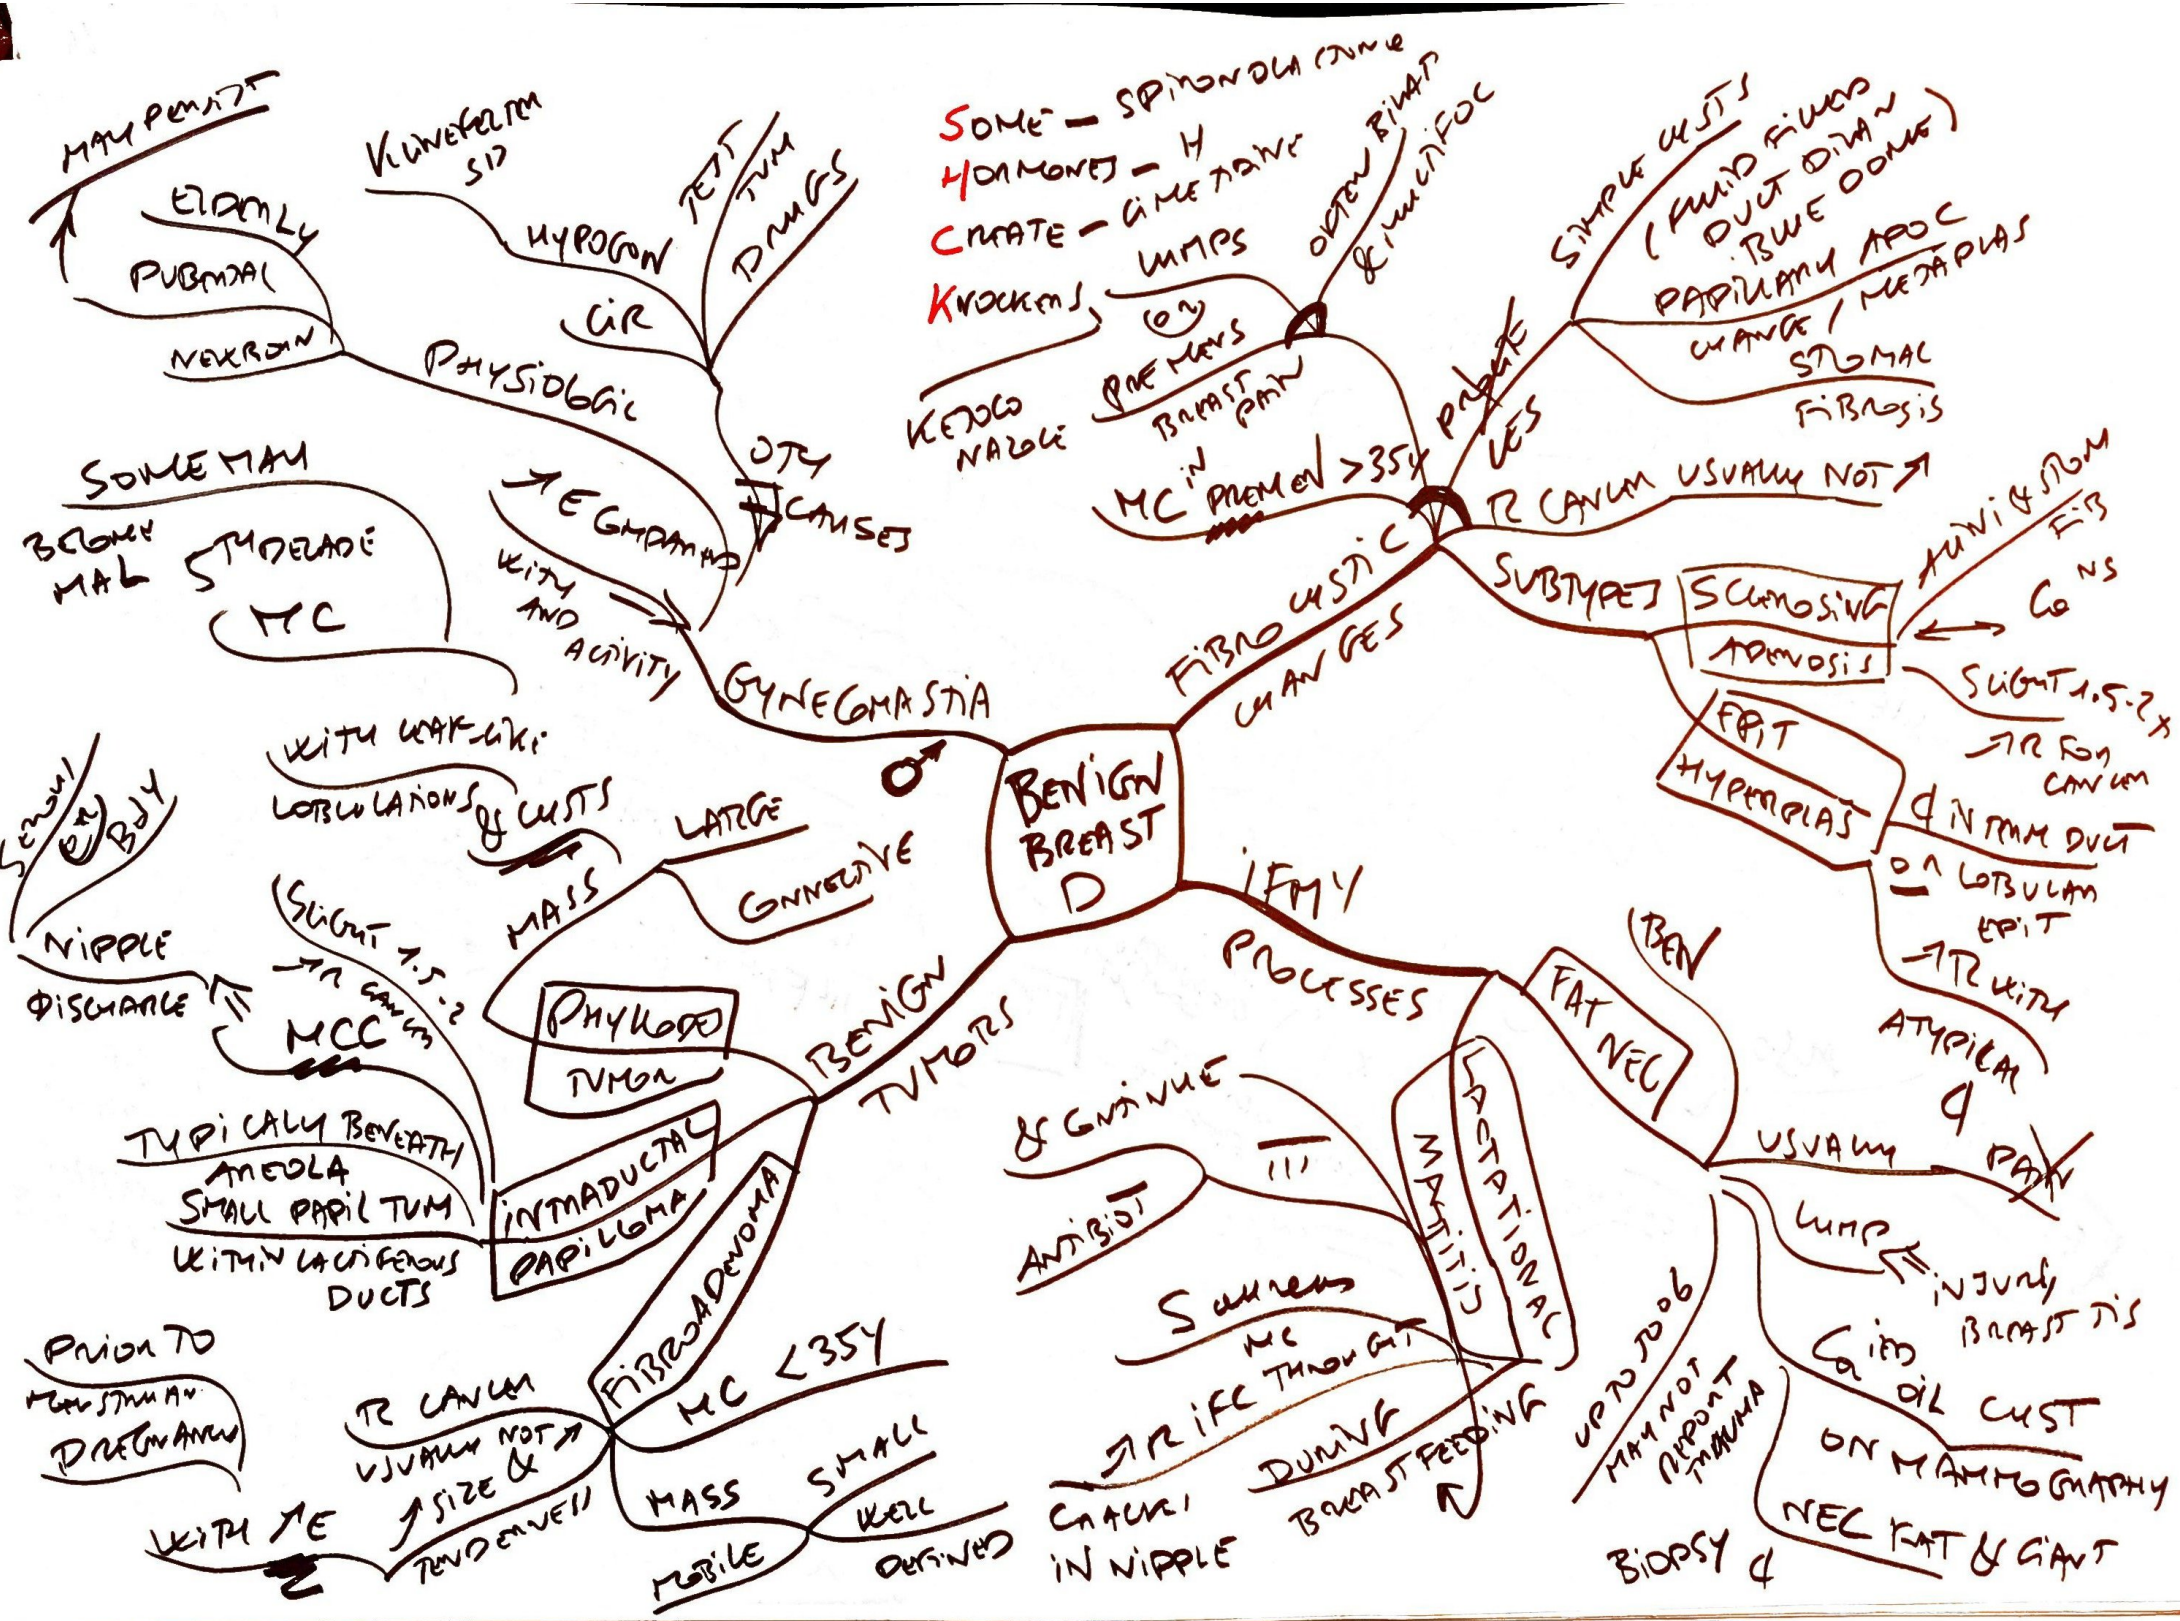 BENIGN
BREAST
D
GYNECOMASTIA
↗ E COMPARED
WITH
AND
ACTIVITY
PHYSIOLOGIC
MAY PERSIST
ELDERLY
PUBERTAL
NEWBORN
OTH
CAUSES
KLINEFELTER
SD
HYPOGON
CIR
TEST
TUM
DRUGS
SOME - SPIRONOLACTONE
HORMONES - H
CREATE - CIMETIDINE
KNOCKERS
KETOCO
NAZOLE
FIBROCYSTIC
CHANGES
LUMPS
OR
PREMENS
BREAST
PAIN
OFTEN BILAT
& MULTIFOC
MC IN PREMEN > 35Y
SIMPLE CYSTS
(FLUID FILLED
DUCT DILAT
BLUE DOME)
PAPILLARY APOC
CHANGE / METAPLAS
STROMAL
FIBROSIS
R CANCER USUALLY NOT ↗
SUBTYPES
SCLEROSING
ADENOSIS
ACINI & STROM
FIB
CaNS
SLIGHT 1.5-2x
↗ R FOR
CANCER
EPIT
HYPERPLAS
¢ IN TERM DUCT
OR LOBULAR
EPIT
↗ R WITH
ATYPICAL
¢
IFMY
PROCESSES
FAT
NEC
BEN
USUALLY
PAIN
LUMP
INJURY
BREAST TIS
UP TO 50 %
MAY NOT
REPORT
TRAUMA
CaIED
OIL CYST
ON MAMMOGRAPHY
BIOPSY ¢
NEC FAT & GIANT
LACTATIONAL
MASTITIS
& CONTINUE
TTT
ANTIBIOT
S aureus
MC
↗ R IFC THROUGHT
CRACKS
IN NIPPLE
DURING
BREASTFEEDING
BENIGN
TUMORS
PHYLLODES
TUMOR
MASS
LARGE
CONNECTIVE
& CYSTS
WITH LEAF-LIKE
LOBULATIONS
MC
5TH DECADE
SOME MAY
BECOME
MAL
INTRADUCTAL
PAPILLOMA
SLIGHT 1.5-2
↗ R CANCER
MCC
NIPPLE
DISCHARGE
SEROUS
OR
BDY
TYPICALY BENEATH
AREOLA
SMALL PAPIL TUM
WITHIN LACTIFEROUS
DUCTS
FIBROADENOMA
MC < 35Y
MASS
SMALL
WELL
DEFINED
MOBILE
R CANCER
USUALLY NOT ↗
↗ SIZE &
TENDERNESS
WITH ↗ E
PRIOR TO
MENSTRUAT
PREGNANCY